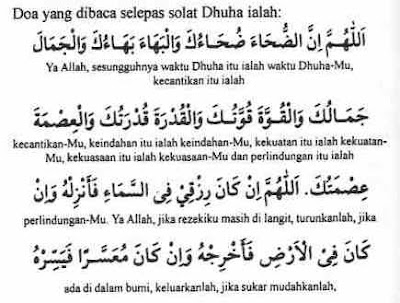 Doa yang dibaca selepas solat Dhuha ialah:
اَللّٰهُمَّ اِنَّ الضُّحَاءَ ضُحَاءُكَ وَالْبَهَاءَ بَهَاءُكَ وَالْجَمَالَ
Ya Allah, sesungguhnya waktu Dhuha itu ialah waktu Dhuha-Mu,
kecantikan itu ialah
جَمَالُكَ وَالْقُوَّةَ قُوَّتُكَ وَالْقُدْرَةَ قُدْرَتُكَ وَالْعِصْمَةَ
kecantikan-Mu, keindahan itu ialah keindahan-Mu, kekuatan itu ialah kekuatan-
Mu, kekuasaan itu ialah kekuasaan-Mu dan perlindungan itu ialah
عِصْمَتُكَ. اَللّٰهُمَّ اِنْ كَانَ رِزْقِيْ فِى السَّمَاءِ فَأَنْزِلْهُ وَاِنْ
perlindungan-Mu. Ya Allah, jika rezekiku masih di langit, turunkanlah, jika
كَانَ فِىْ الْاَرْضِ فَأَخْرِجْهُ وَاِنْ كَانَ مُعَسَّرًا فَيَسِّرْهُ
ada di dalam bumi, keluarkanlah, jika sukar mudahkanlah,